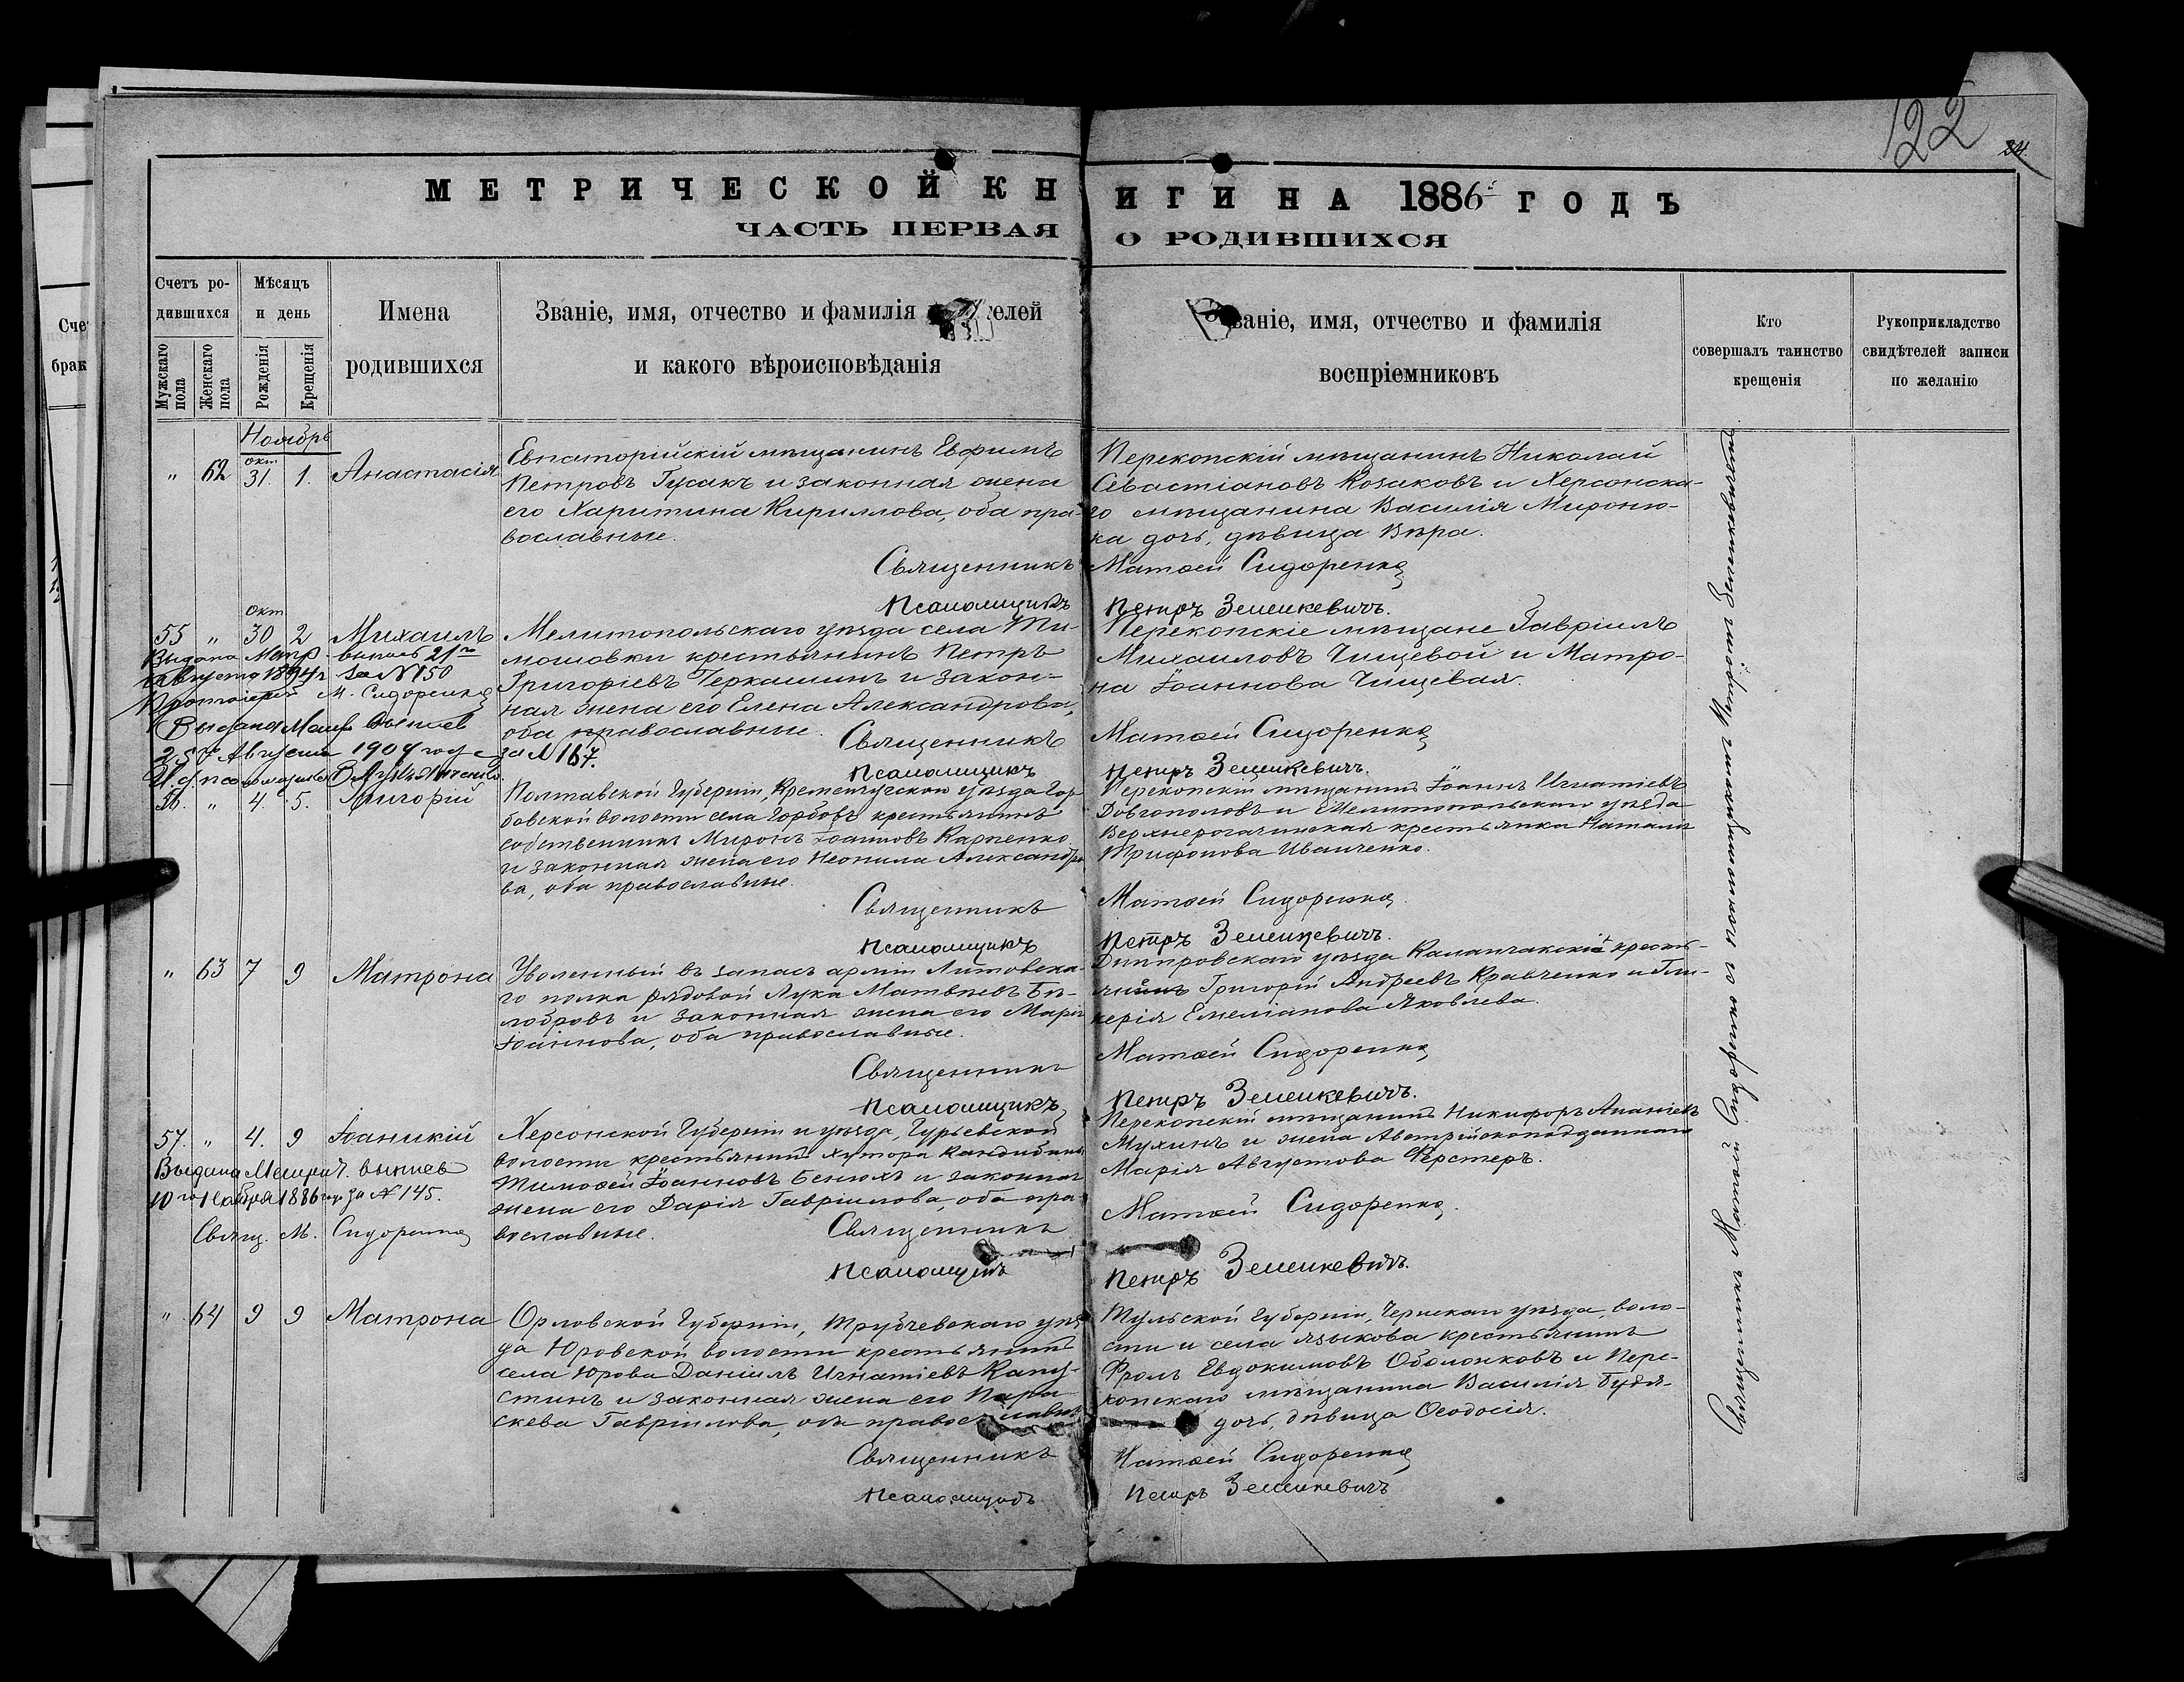 122
34
МЕТРИЧЕСКОЙ КНИГИ НА 1886й ГОДЪ
ЧАСТЬ ПЕРВАЯ О РОДИВШИХСЯ
Счетъ ро-
дившихся
Мужскаго пола
Женскаго пола
Мѣсяцъ
и день
Рожденія
Крещенія
Имена
родившихся
Званіе, имя, отчество и фамилія елей
и какого вѣроисповѣданія
Званіе, имя, отчество и фамилія
воспріемниковъ
Кто
совершалъ таинство
крещенія
Рукоприкладство
свидѣтелей записи
по желанію
Сче
брак
Ноябрь
" 62 окт 31. 1. Анастасія
Евпаторійскій мѣщанинъ Евфимъ
Петровъ Гусакъ и законная жена
его Харитина Кириллова, оба пра-
вославные.
Перекопскій мѣщанинъ Николай
Севастіановъ Козаковъ и Херсонска-
го мѣщанина Василія Мироню-
ка дочь, дѣвица Вѣра.
Священникъ Матѳей Сидоренко
Псаломщикъ Петръ Зеленкевичъ.
55 " окт 30 2 Михаилъ
Выдана Метр. выпись 21го
августа 1894 г за № 150
Протоіерей М. Сидоренко
Выдана Метр выпись
25го Августа 1904 года за № 167.
Мелитопольскаго уѣзда села Ти-
мошовки крестьянинъ Петръ
Григоріевъ Черкашинъ и закон-
ная жена его Елена Александрова,
оба православные.
Перекопскіе мѣщане Гавріилъ
Михаиловъ Чищевой и Матро-
на Іоаннова Чищевая.
Священникъ Матѳей Сидоренко
Псаломщикъ Петръ Зеленкевичъ.
56. " 4. 5. Григорій
Полтавской Губерніи, Кременчугскаго уѣзда Гор
бовской волости села Горбовъ крестьянинъ
собственникъ Миронъ Іоанновъ Карпенко
и законная жена его Неонила Александро
ва, оба православные.
Перекопскій мѣщанинъ Іоаннъ Игнатіевъ
Довгополовъ и Мелитопольскаго уѣзда
Верхнерогачинская крестьянка Наталія
Трифонова Иванченко.
Священникъ Матѳей Сидоренко
Псаломщикъ Петръ Зеленкевичъ.
" 63 7 9 Матрона
Уволенный въ запасъ арміи Литовска-
го полка рядовой Лука Матвѣевъ Бѣ-
лобровъ и законная жена его Марія
Іоаннова, оба православные.
Днѣпровскаго уѣзда Каланчакскій кресть-
янинъ Григорій Андреевъ Кравченко и Гли-
керія Емеліанова Яковлева.
Священникъ Матѳей Сидоренко
Псаломщикъ Петръ Зеленкевичъ.
57. " 4. 9 Іоанникій
Выдана Метрич. выпись
10го Ноября 1886 года за № 145.
Свящ. М. Сидоренко
Херсонской Губерніи и уѣзда, Гурьевской
волости крестьянинъ хутора Кандибина
Тимоѳей Іоанновъ Бенюхъ и законная
жена его Дарія Гавріилова, оба пра-
вославные.
Перекопскій мѣщанинъ Никифоръ Ананіевъ
Мухинъ и жена Австрійскоподданнаго
Марія Августова Ферстеръ.
Священникъ Матѳей Сидоренко
Псаломщикъ Петръ Зеленкевичъ.
" 64 9 9 Матрона
Орловской Губерніи, Трубчевскаго уѣз
да Юровской волости крестьянинъ
села Юрова Даніилъ Игнатіевъ Капу-
стинъ и законная жена его Пара
скева Гавріилова, оба православные
Тульской Губерніи, Чернскаго уѣзда, воло-
сти и села Языкова крестьянинъ
Фролъ Евдокимовъ Оболонковъ и Пере-
копскаго мѣщанина Василія
дочь, дѣвица Ѳеодосія.
Священникъ Матѳей Сидоренко
Псаломщикъ Петръ Зеленкевичъ
Священникъ Матѳей Сидоренко съ псаломщикомъ Петромъ Зеленкевичемъ.